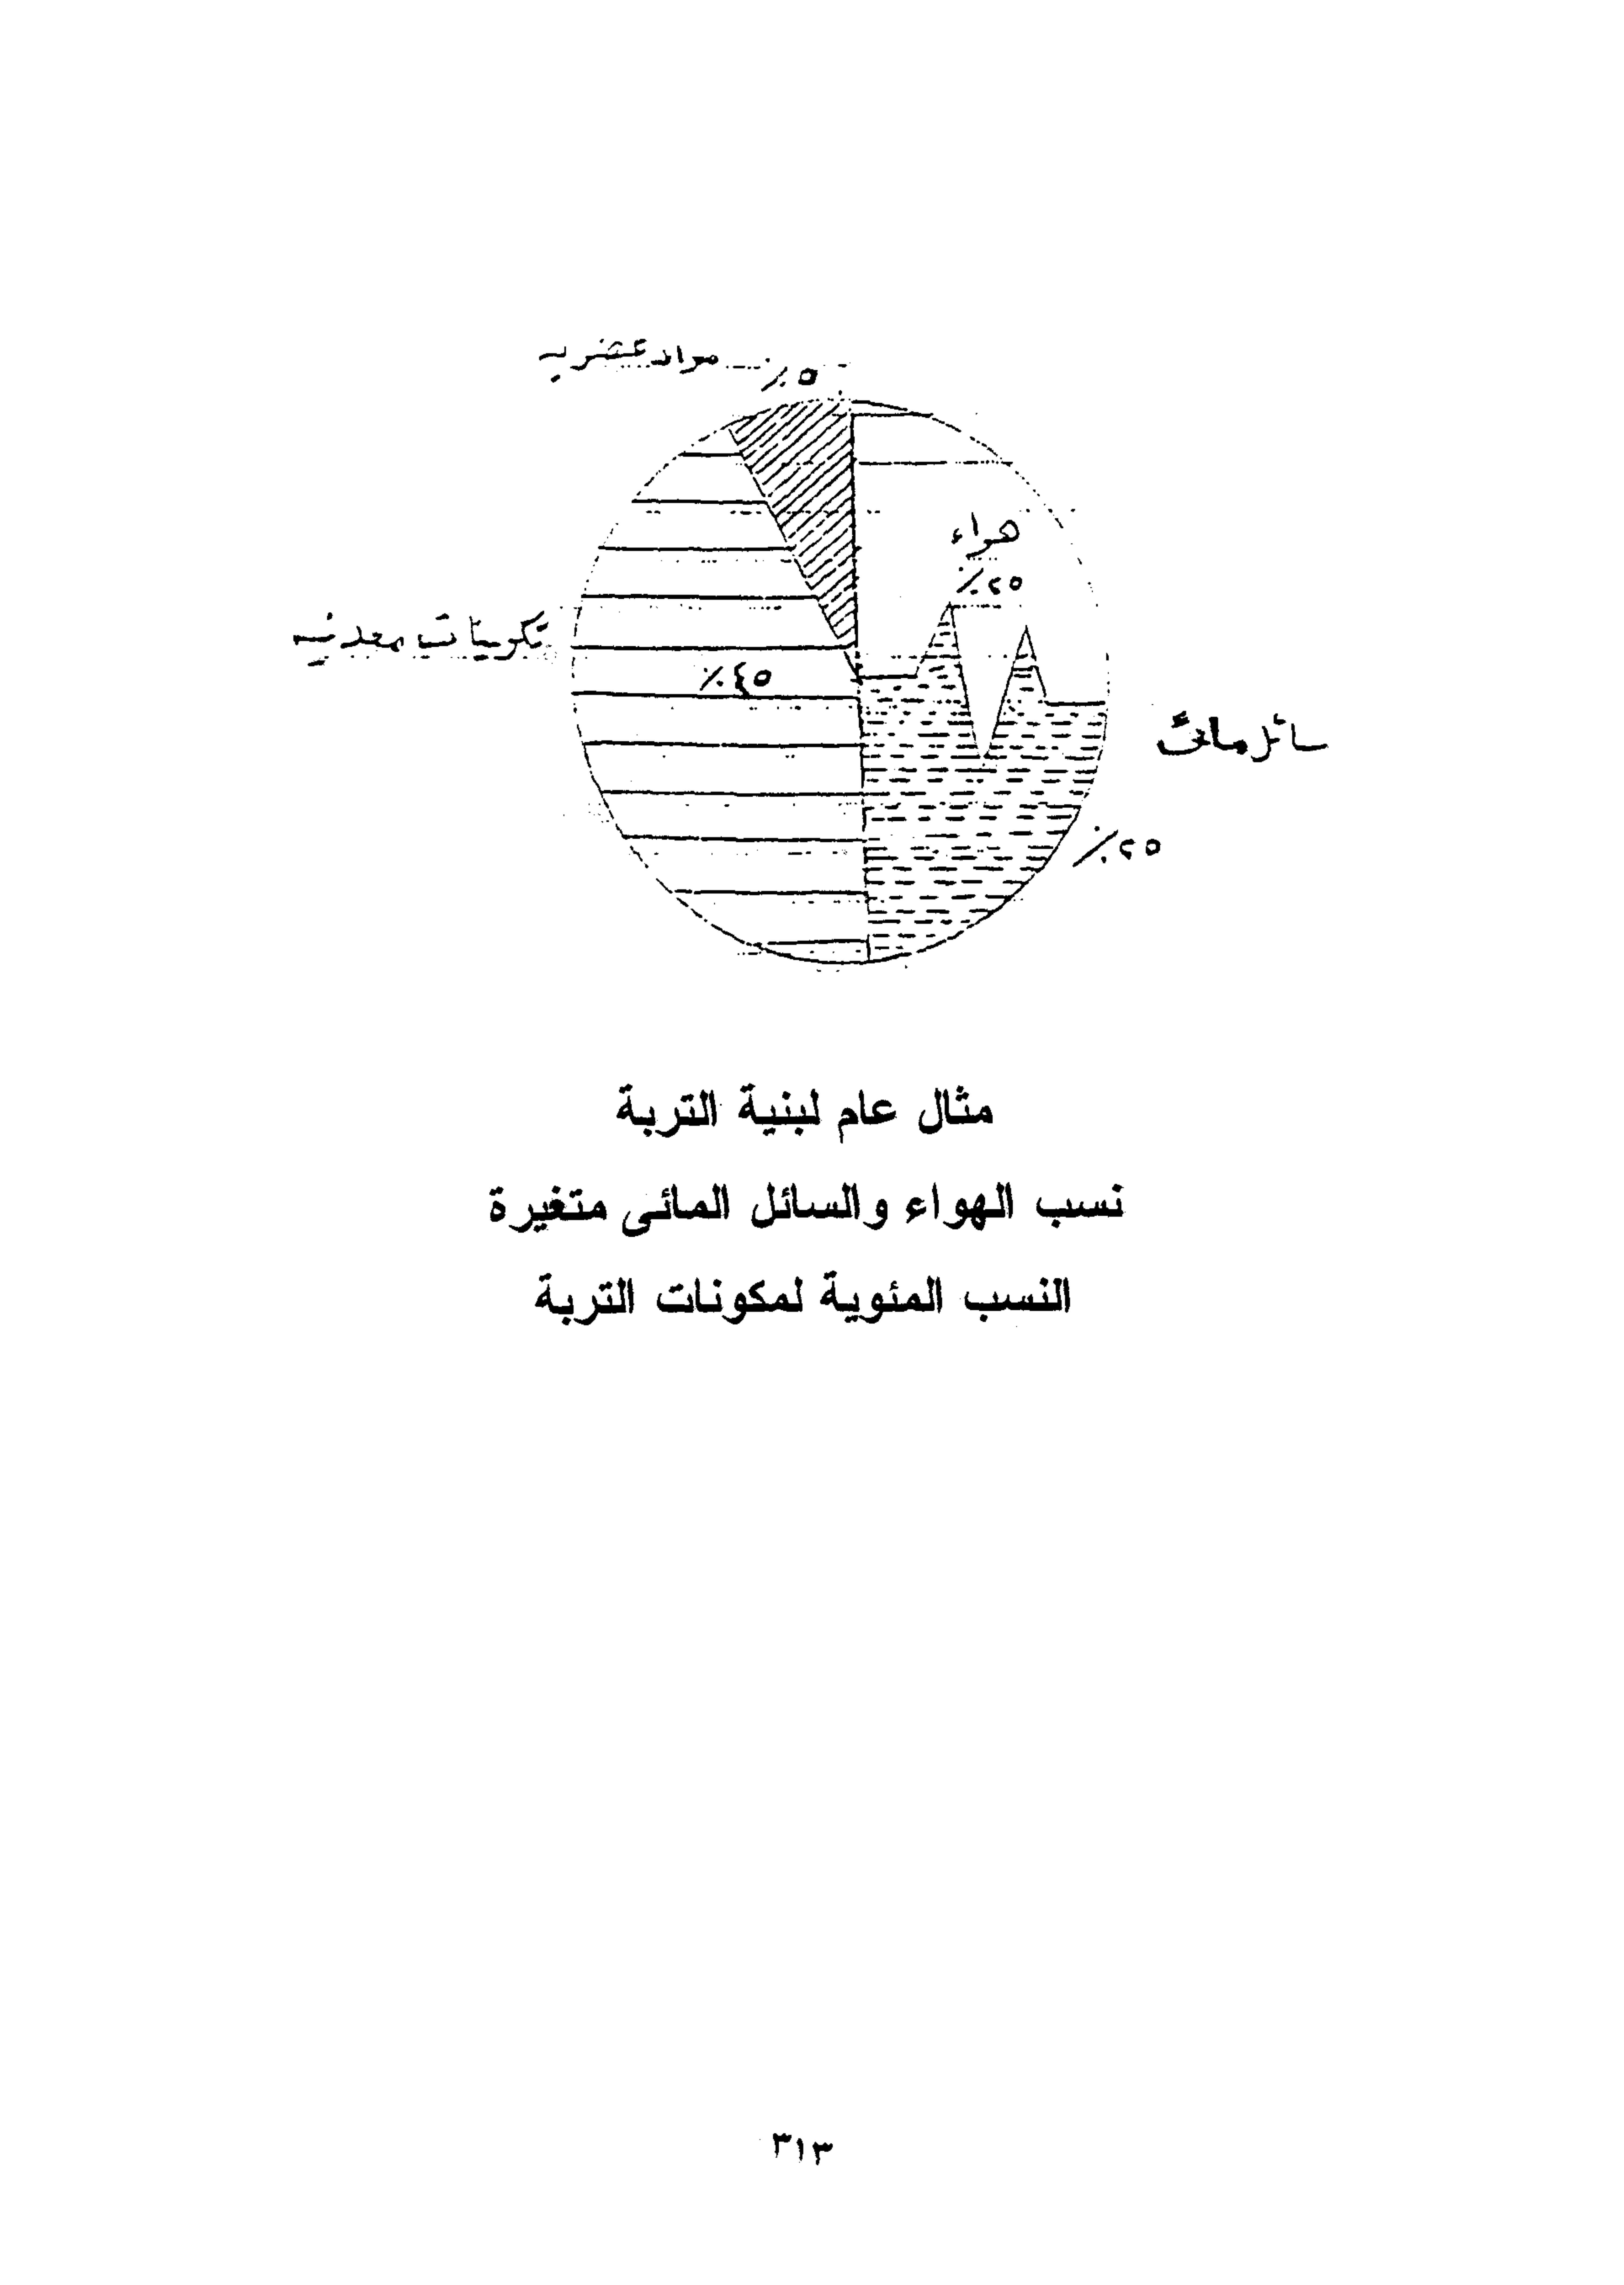 مواد عضويه
٥٪
هواء
٢٥٪
تكوينات معدنيه
٤٥٪
سائل مائى
٢٥٪
مثال عام لبنية التربة
نسب الهواء والسائل المائى متغيرة
النسب المئوية لمكونات التربة
٣١٣